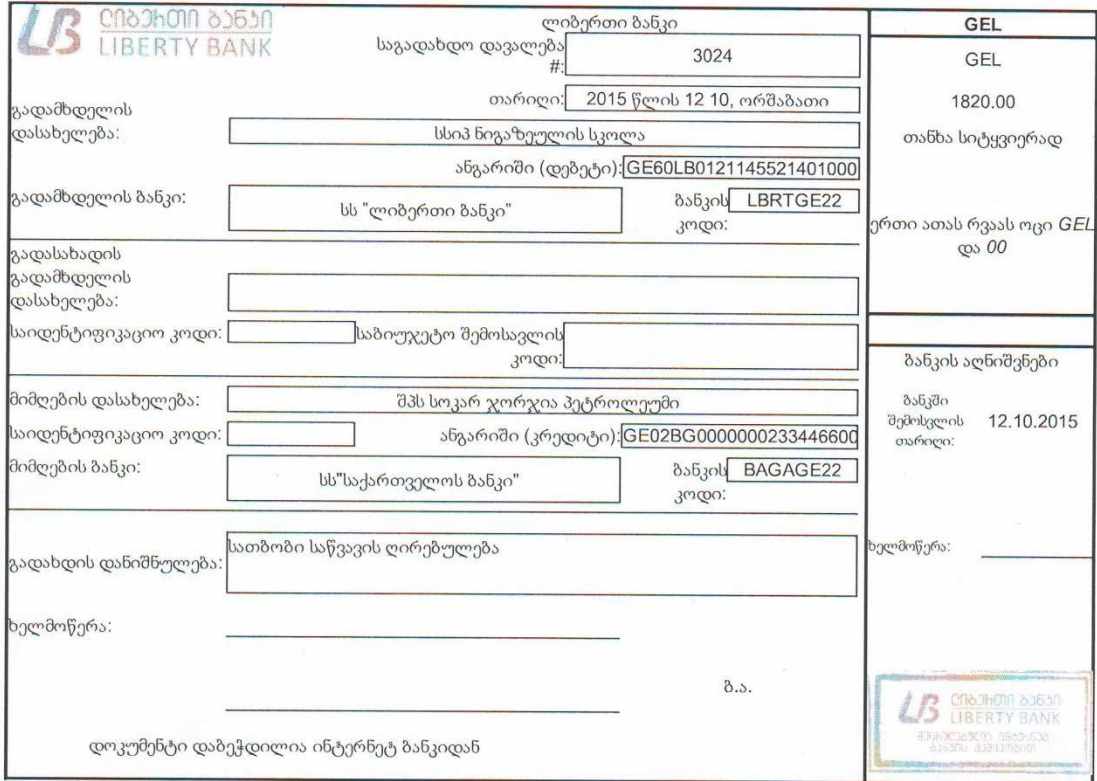 ლიბერთი ბანკი
LIBERTY BANK
ლიბერთი ბანკი
საგადახდო დავალება #: 3024
თარიღი: 2015 წლის 12 10, ორშაბათი
გადამხდელის დასახელება: სსიპ ნიგაზეულის სკოლა
ანგარიში (დებეტი): GE60LB0121145521401000
გადამხდელის ბანკი: სს "ლიბერთი ბანკი"
ბანკის კოდი: LBRTGE22
გადასახადის
გადამხდელის
დასახელება:
საიდენტიფიკაციო კოდი:
საბიუჯეტო შემოსავლის
კოდი:
მიმღების დასახელება: შპს სოკარ ჯორჯია პეტროლეუმი
საიდენტიფიკაციო კოდი:
ანგარიში (კრედიტი): GE02BG0000000233446600
მიმღების ბანკი: სს"საქართველოს ბანკი"
ბანკის კოდი: BAGAGE22
გადახდის დანიშნულება: სათბობი საწვავის ღირებულება
ხელმოწერა:
ბ.ა.
დოკუმენტი დაბეჭდილია ინტერნეტ ბანკიდან
GEL
GEL
1820.00
თანხა სიტყვიერად
ერთი ათას რვაას ოცი GEL
და 00
ბანკის აღნიშვნები
ბანკში
შემოსვლის
თარიღი:
12.10.2015
ხელმოწერა:
ლიბერთი ბანკი
LIBERTY BANK